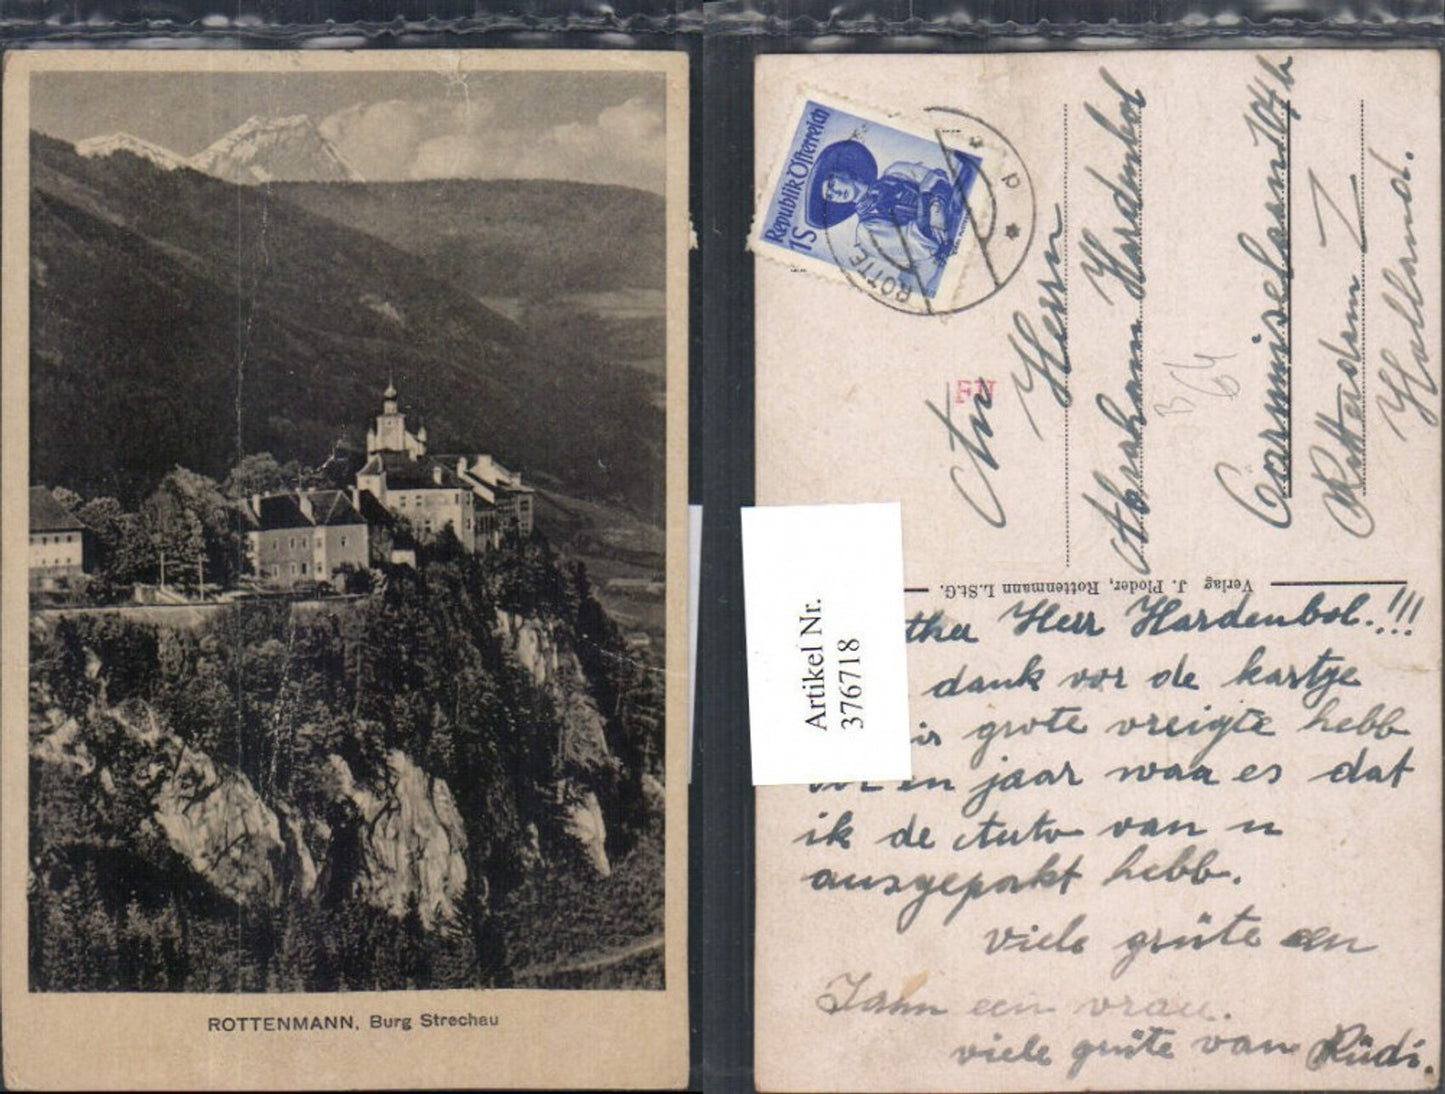 ROTTENMANN, Burg Strechau
Republik Österreich
1S
ROTTE
d
An
Herrn
Abraham Hardenbol
104b
Rotterdam Z
Holland.
Verlag J. Ploder, Rottenmann L.St.G.
Artikel Nr.
376718
Herr Hardenbol.!!!
dank vor de kartje
grote vreigte hebb
en jaar waa es dat
ik de Auto van u
ausgepakt hebb.
viele grüte een
Jahn een vrau.
viele grüte van Rüdi.